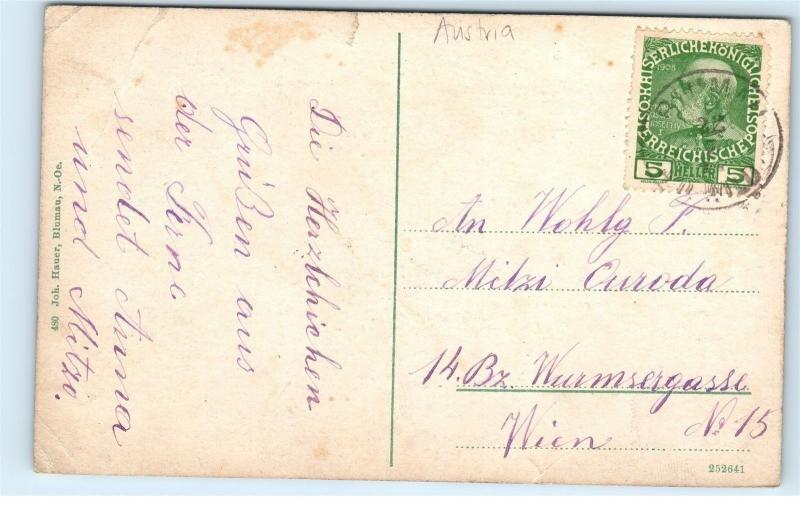 Austria
Die Herzlchichen
Grüßen aus
der
sendet Anna
und Mitzo.
480 Joh. Hauer, Blumau, N.-Oe.
1908
KAISERLICHEKÖNIGLICHE
ÖSTERREICHISCHE POST
5 HELLER 5
An Wohlg F.
Mitzi Curoda
14. Bz. Wurmsergasse
Wien № 15
252641